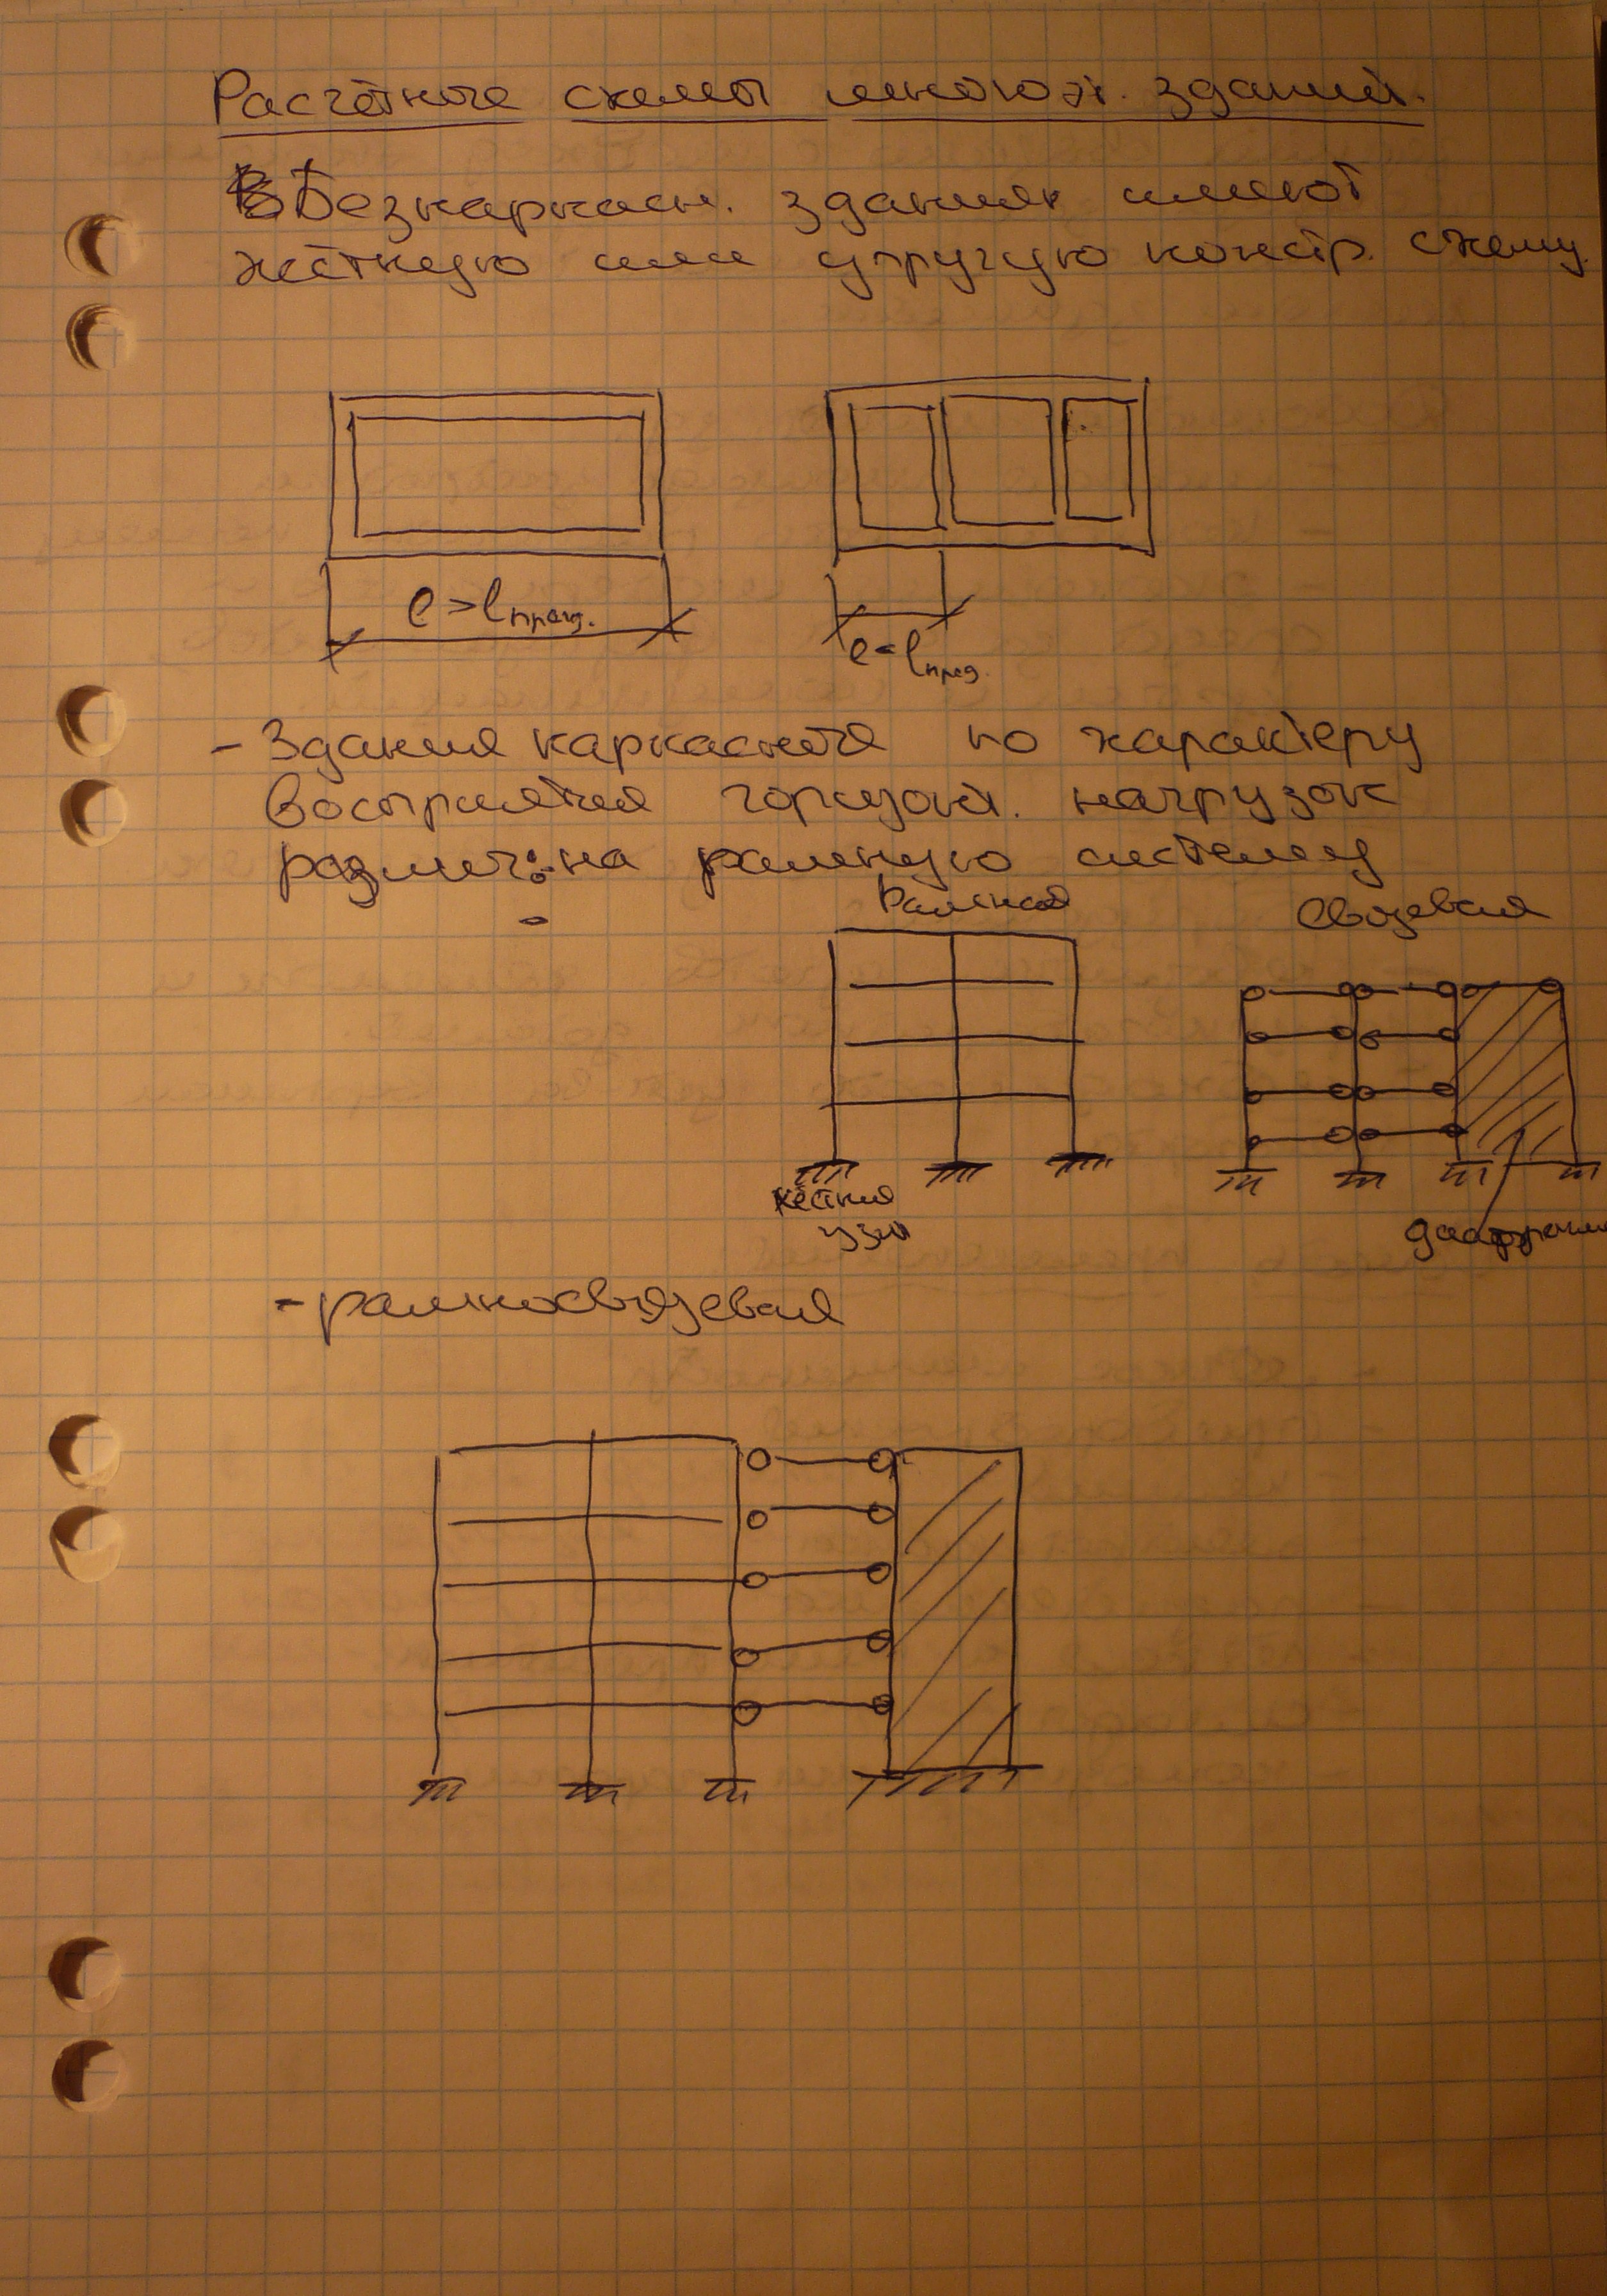 Расчётные схемы многоэт. зданий.
Безкаркасн. здания имеют
жёсткую или упругую констр. схему.
l > lпред.
l < lпред.
- Здания каркасные по характеру
восприятия горизонт. нагрузок
различ: на рамную систему
-
Рамная
Связевая
жёсткие
узлы
диафрагмы
- рамносвязевая